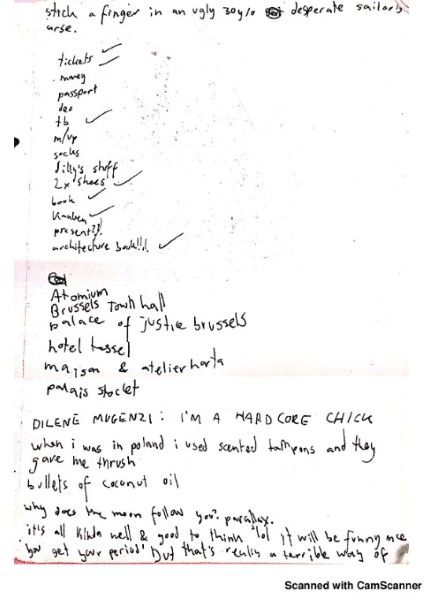 stick a finger in an ugly 30y/o desperate sailors
arse.
tickets
money
passport
deo
tb
m/up
socks
Jilly's stuff
2x shoes
book
present??!
architecture book!!!
Atomium
Brussels Town hall
palace of justice brussels
hotel tassel
maison & atelier horta
palais stoclet
DILENE MUGENZI: I'M A HARDCORE CHICK
when i was in poland i used scented tampons and they
gave me thrush
bullets of coconut oil
why does the moon follow you? parallax.
it's all kinda well & good to think 'lol it will be funny once
you get your period' but that's really a terrible way of
Scanned with CamScanner